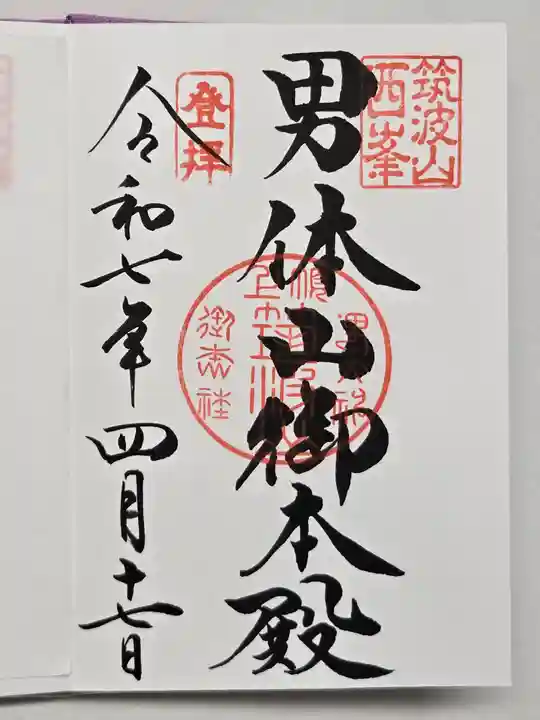 筑波山
西峯
男体山御本殿
登拝
令和七年四月十七日
御本社